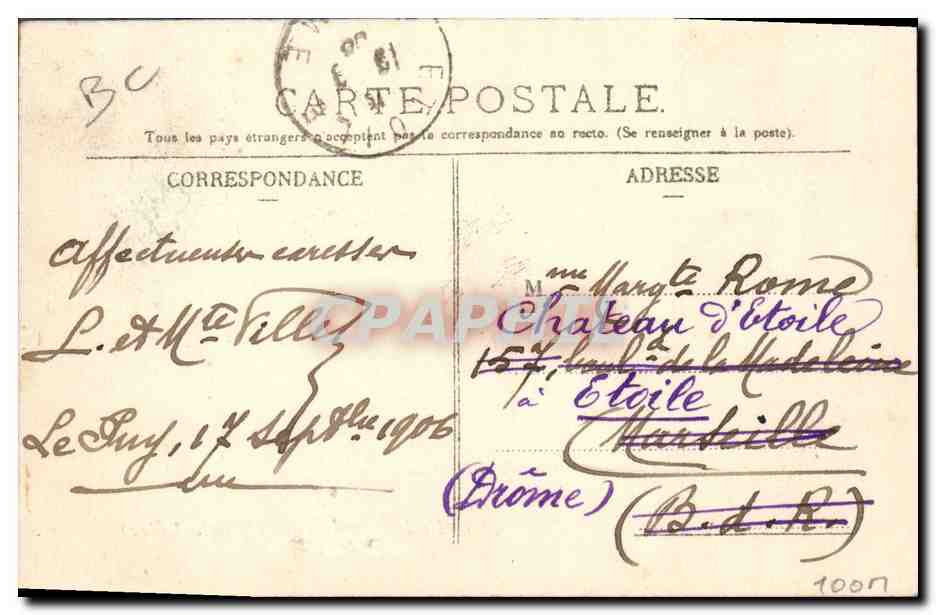 BC
CARTE POSTALE.
Tous les pays étrangers n'acceptent pas la correspondance au recto. (Se renseigner à la poste).
CORRESPONDANCE
Affectueuses caresses
L. et Mte Tillet
Le Puy, 17 Septbre 1906
ADRESSE
Mme Margte Rome
Chateau d'Etoile
157, boulrd de la Madeleine
à Etoile
Marseille
(Drôme)
(B. d. R.)
CPAPHIL
100M